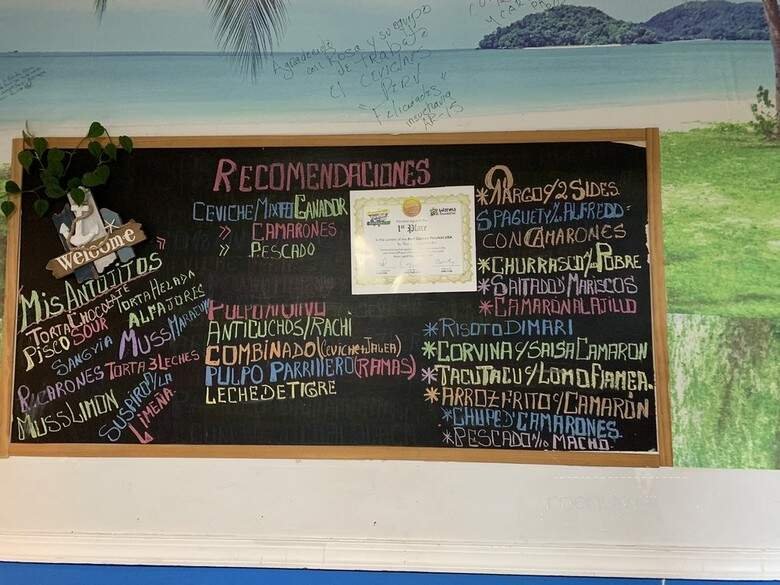 Agradecido
con Rosa y su equipo
de trabajo
El Ceviches
PERU
"Felicidades"
AR-15
Welcome
MIS ANTOJITOS
TORTA CHOCOLATE
TORTA HELADA
PISCO SOUR
ALMAJORIS
SANGVIA
MUSS MARACUYA
RICARONES
TORTA 3 LECHES
MUSS LIMON
SUSPIRO A LA
LIMEÑA.
RECOMENDACIONES
CEVICHE MIXTO GANADOR
» CAMARONES
» PESCADO
1st Place
ANTICUCHOS/RACHI
COMBINADO (CEVICHE+JALEA)
PULPO PARRILLERO (RAMAS)
LECHE DE TIGRE
*ARGO c/2 SIDES
SPAGUETY/ALFREDO
CON CAMARONES
*CHURRASCO/POBRE
*SALTADO MARISCOS
*CAMARON AL AJILLO
*RISOTO DI MARI
*CORVINA c/SALSA CAMARON
*TACU TACU c/LOMO FLAMEA.
*ARROZ FRITO c/CAMARÓN
*CHUPE D'CAMARONES
*PESCADO/LO MACHO